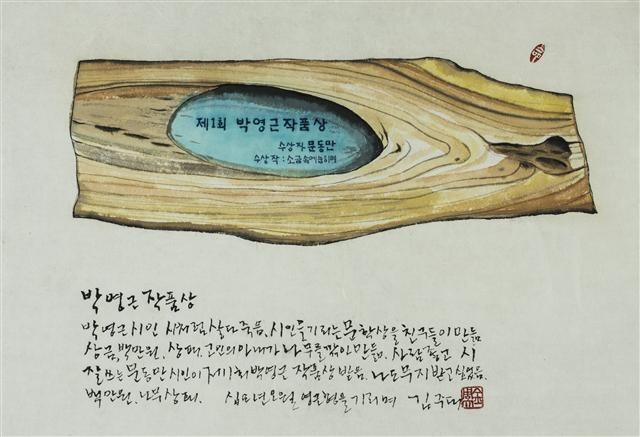 제1회 박영근작품상
수상자 문동만
수상작 : 소금속에눕히며
박영근작품상
박영근시인 시처럼살다죽음. 시인을기리는문학상을친구들이만듦
상금,백만원. 상패,고인의아내가나무를깎아만듦. 사람좋고 시
잘쓰는문동만시인이제1회박영근 작품상받음. 나도무지받고싶었음.
백만원.나무상패. 십오년오월 영근형을기리며 김주대